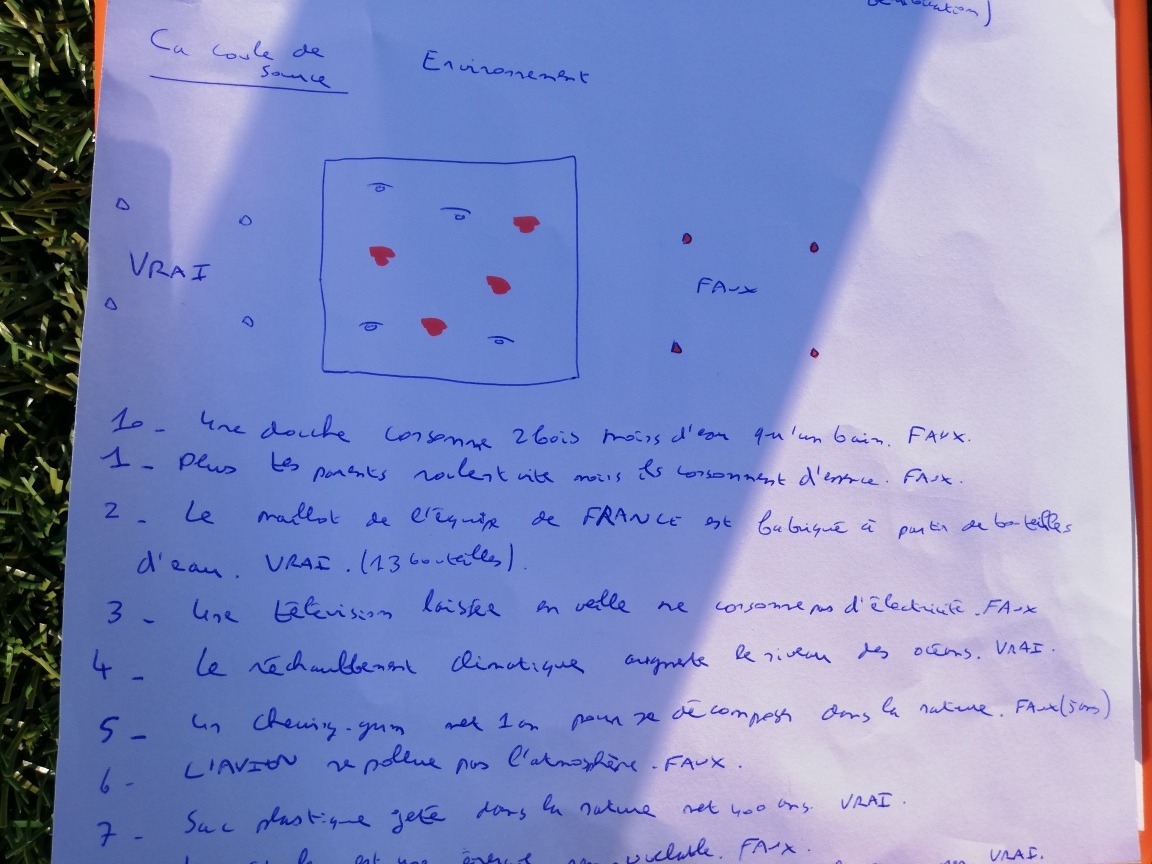 Ca coule de
source
Environnement
VRAI
FAUX
10 - Une douche consomme 2 fois moins d'eau qu'un bain. FAUX.
1 - Plus tes parents roulent vite moins ils consomment d'essence. FAUX.
2 - Le maillot de l'équipe de FRANCE est fabriqué à partir de bouteilles
d'eau. VRAI. (13 bouteilles).
3 - Une télévision laissée en veille ne consomme pas d'électricité. FAUX
4 - Le réchauffement climatique augmente le niveau des océans. VRAI.
5 - Un chewing-gum met 1 an pour se décomposer dans la nature. FAUX (5 ans)
6 - L'AVION ne pollue pas l'atmosphère. FAUX.
7 - Sac plastique geté dans la nature met 400 ans. VRAI.
est une énergie FAUX. VRAI.